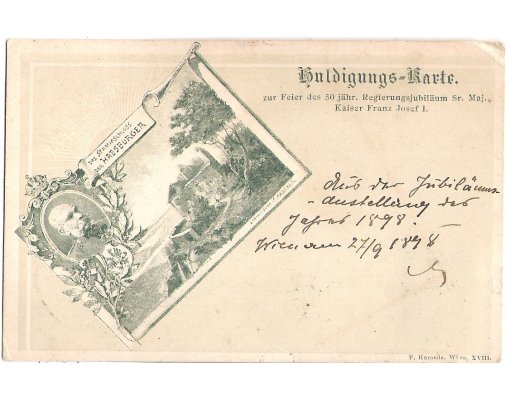 Huldigungs-Karte.
zur Feier des 50 jähr. Regierungsjubiläum Sr. Maj.
Kaiser Franz Josef I.
DAS STAMMSCHLOSS
DER HABSBURGER
Aus der Jubiläums
-ausstellung des
Jahres 1898.
Wien am 27/9 1898
F. Kuranda. Wien, XVIII.